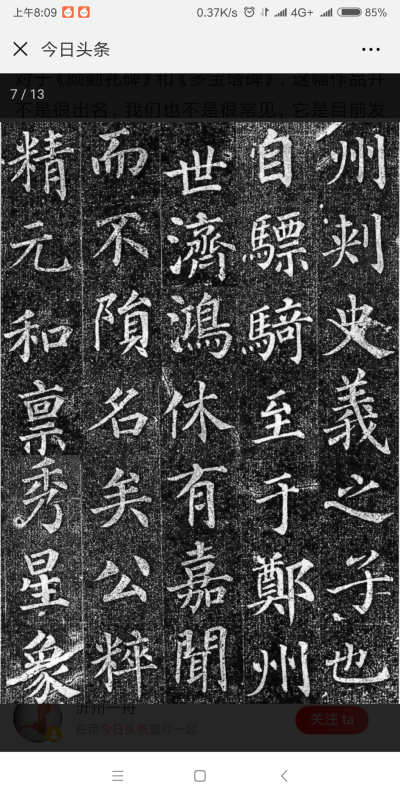 上午8:09
0.37K/s
4G+
85%
今日头条
7 / 13
对于《颜勤礼碑》和《多宝塔碑》，这幅作品并
不是很出名，我们也不是很常见，它是目前发
州刾史義之子也
自驃騎至于鄭州
世濟鴻休有嘉聞
而不隕名矣公粹
精元和禀秀星象
在用今日头条逛你一起
关注 ta